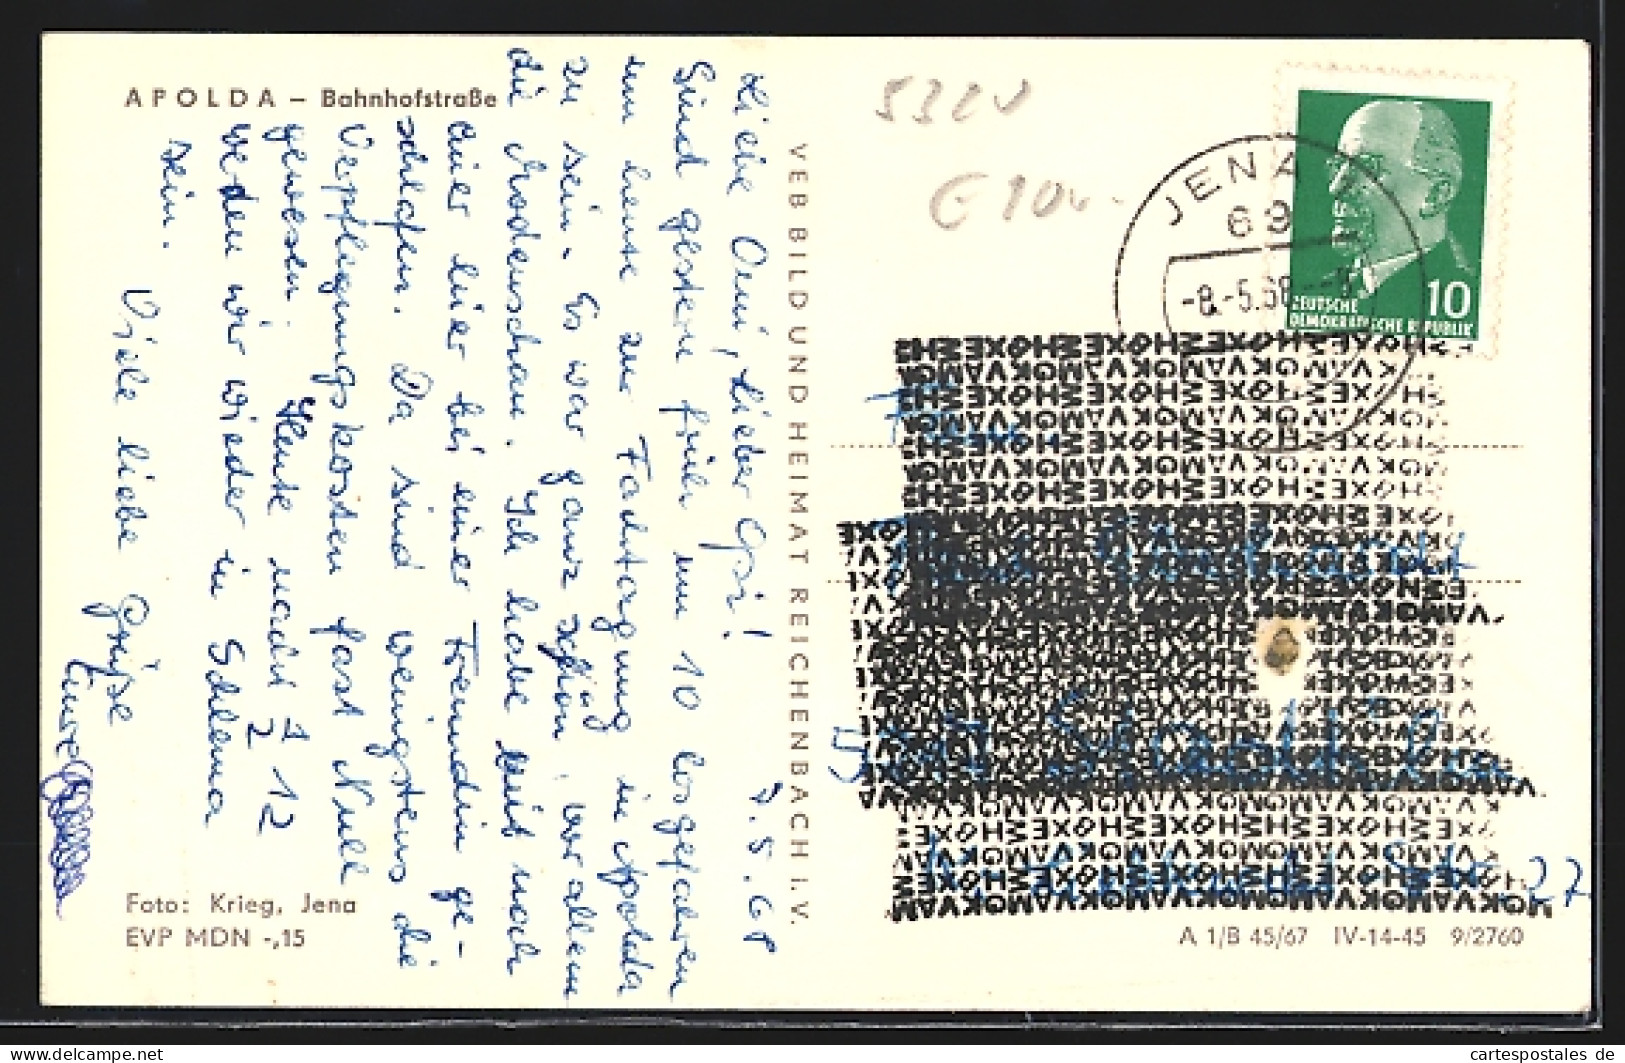 APOLDA – Bahnhofstraße
Liebe Omi, lieber Opi!
7.5.68
Sind gestern früh um 10 losgefahren
um heute zur Fachtagung in Apolda
zu sein. Es war ganz schön, vor allem
die Modenschau. Ich habe mit noch
einer hier bei einer Freundin ge-
schlafen. Da sind wenigstens die
Verpflegungskosten fast Null
gewesen. Heute nacht 1/2 12
werden wir wieder in Schlema
sein.
Viele liebe Grüße
Eure
Foto: Krieg, Jena
EVP MDN -,15
VEB BILD UND HEIMAT REICHENBACH I. V.
JENA 1
69
-8.-5.68
10
DEUTSCHE
DEMOKRATISCHE REPUBLIK
27
A 1/B 45/67 IV-14-45 9/2760
cartespostales de
http://www.cartespostales.eu